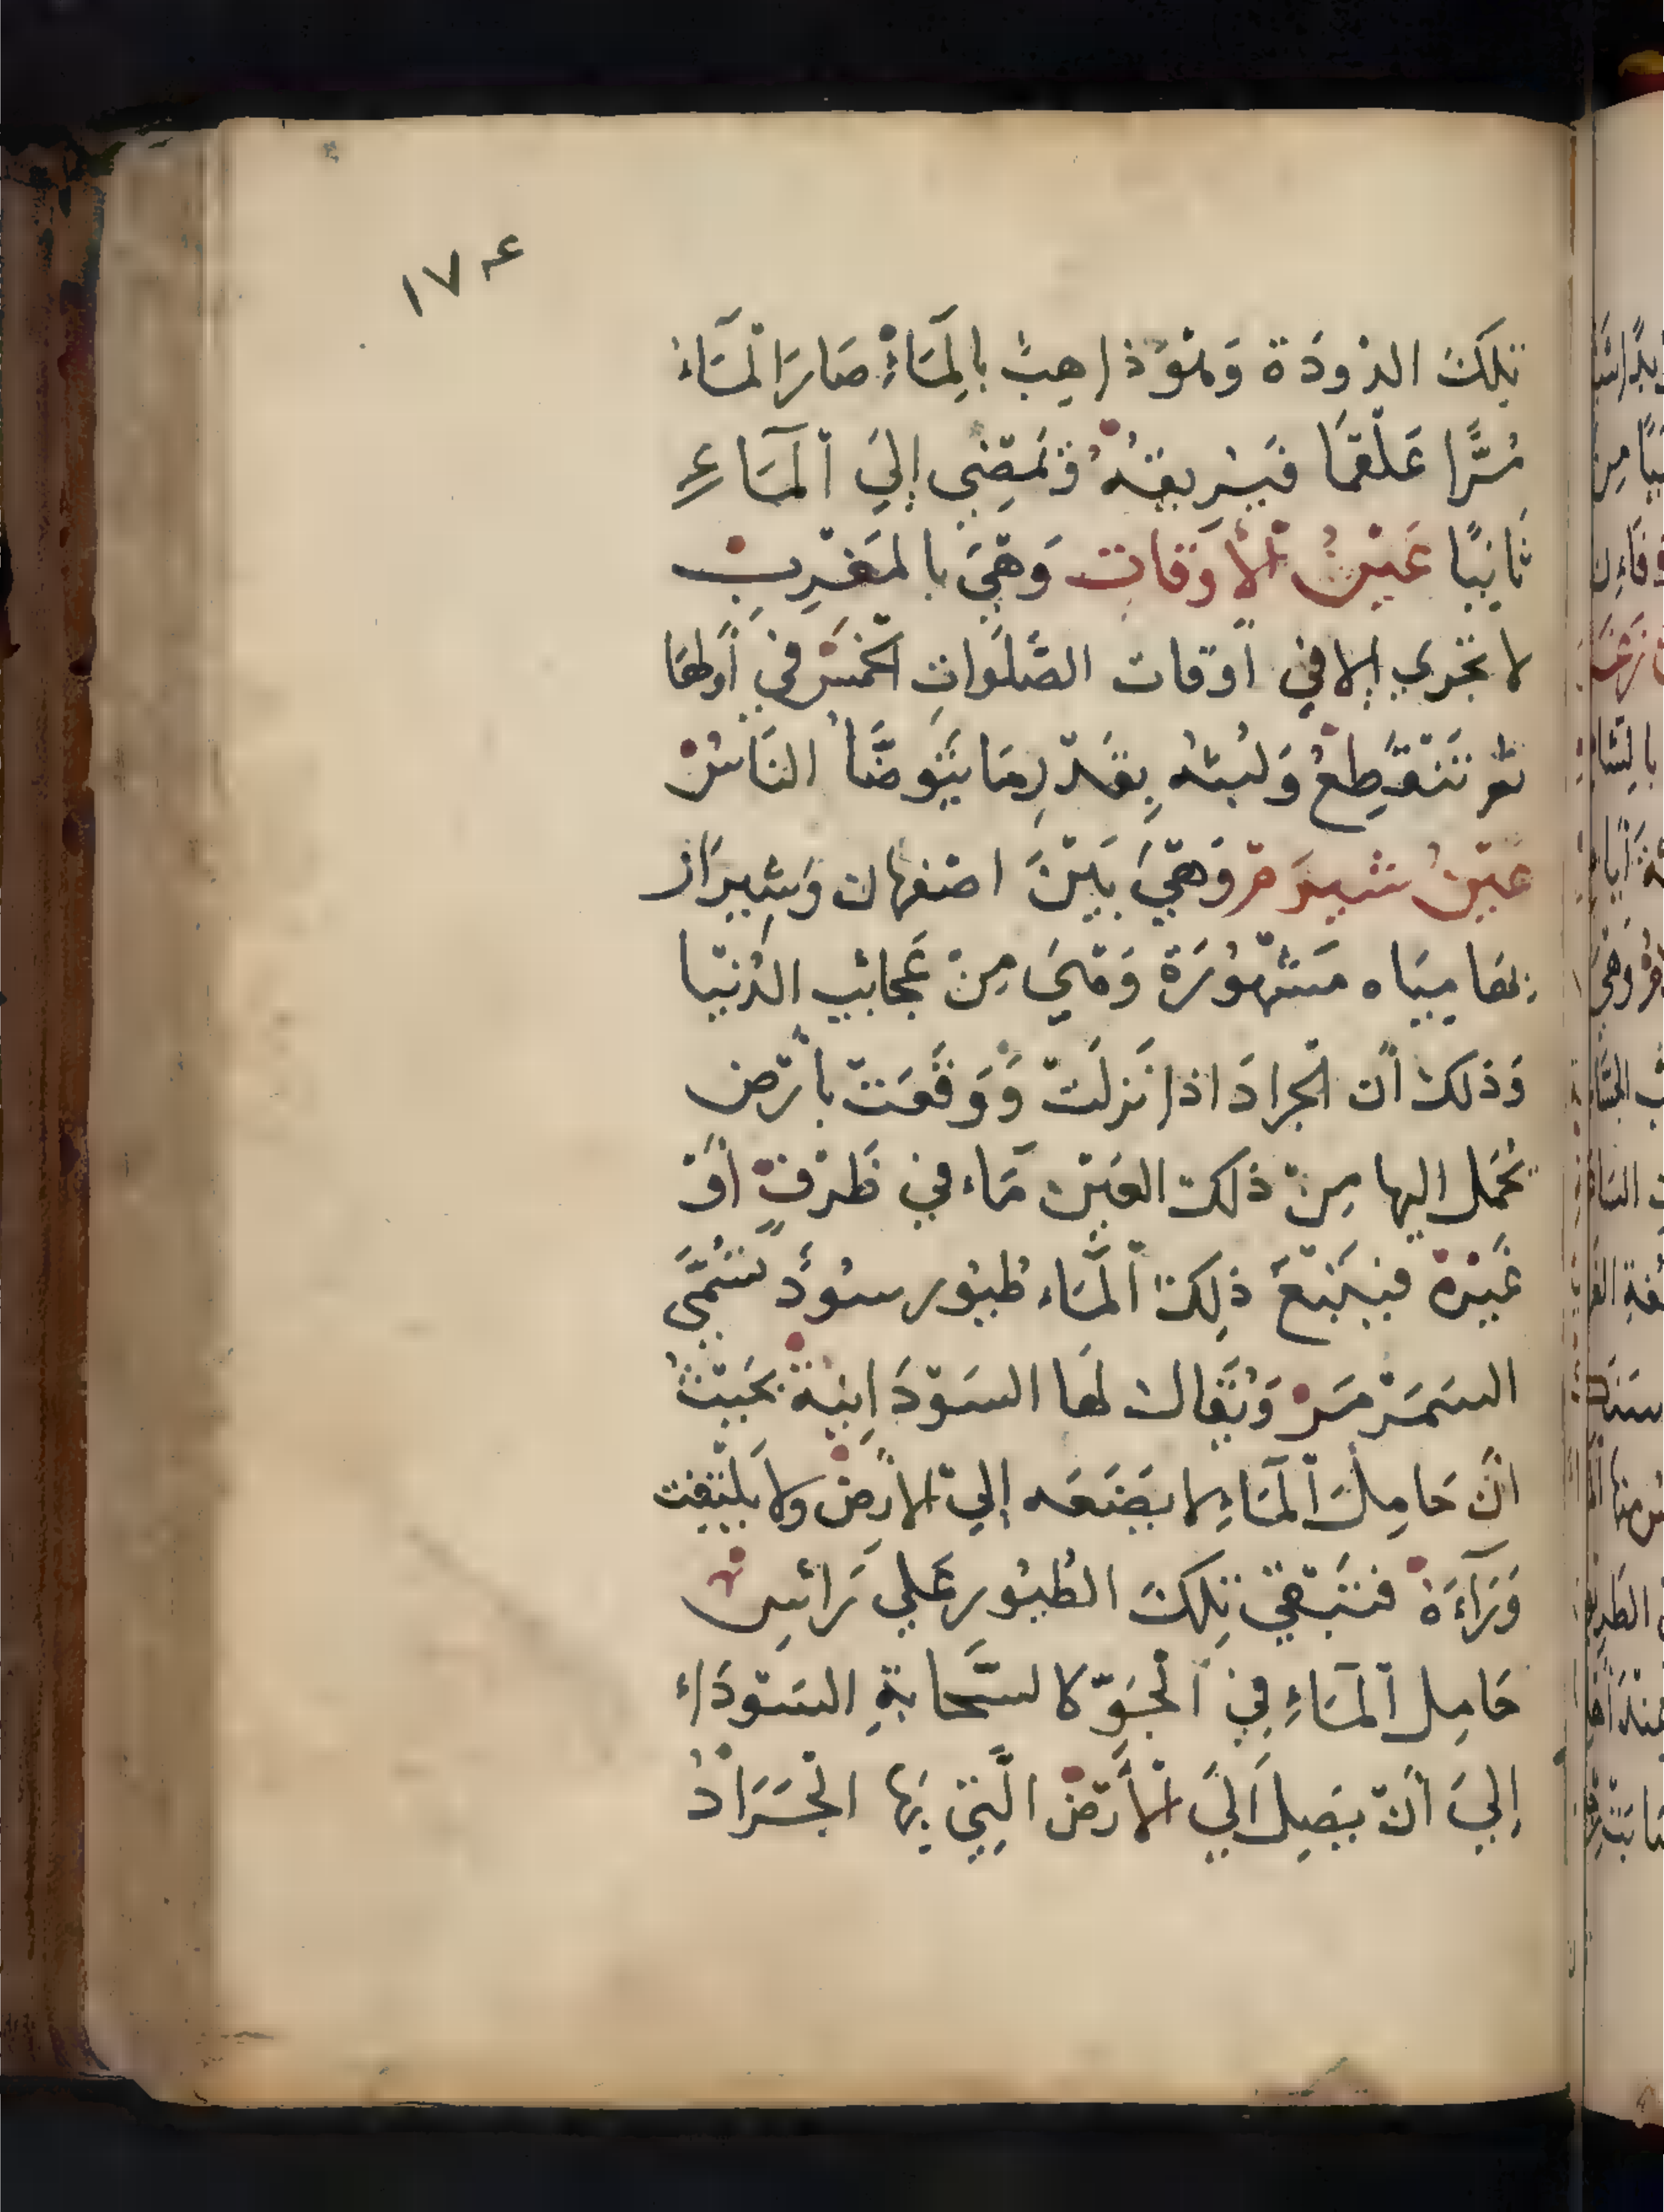 ١٧٤
تلك الدُودَة وَهُوَ ذاهِبٌ بالِمَاءْ صَارَ الْمَاءُ
مُرًّا عَلْقمًا فَيُريقهُ وَيَمضِي إِليَ الْمَاءِ
ثَانِيًا عَيْنُ الْأَوْقاتِ وَهْيَ بالمَغْرِبِ
لا تَجْرِي إلا فِي أوْقات الصَّلَوَاتِ الْخَمْسْ فِي أَوَّلهَا
ثم تَنْقَطِعْ وَلبثه بِقَدْرِ مَا يَتَوضَّأ النَاسُ
عَيْنُ شيرَمْ وَهْيَ بَيْنَ اصْفهان وَشِيرَاز
بها مِيَاه مَشْهُورَة وَهْيَ مِنْ عَجائب الدُنْيَا
وَذلك أَن الجرادَ اذا نَزلَتْ وَوَقَعَتْ بأرْض
يُحْمَل اليها مِنْ ذلك العَيْن مَاء في ظَرْفٍ أَوْ
غَيْرهْ فيَتْبَعَ ذلِكَ الْمَاء طُيُور سُوْد تُسَمَّى
السَمَرْمَرْ وَيُقال لهَا السَوْدَانِيَة بحَيْثُ
أنَّ حَامِلَ الْمَاءِ لا يَضَعَه إليَ الأرضْ ولا يَلْتَفِت
وَرَآءَهْ فتَبْقَي تِلكَ الطُيُور عَلي رَأسِ
حَامِل الْمَاءِ فِي الْجَوّ كالسَّحابَةِ السَوْدَاء
إِليَ أَنْ يَصِل اَلَيَ الْأَرْض الَّتِي بِهَا الْجَرَادُ